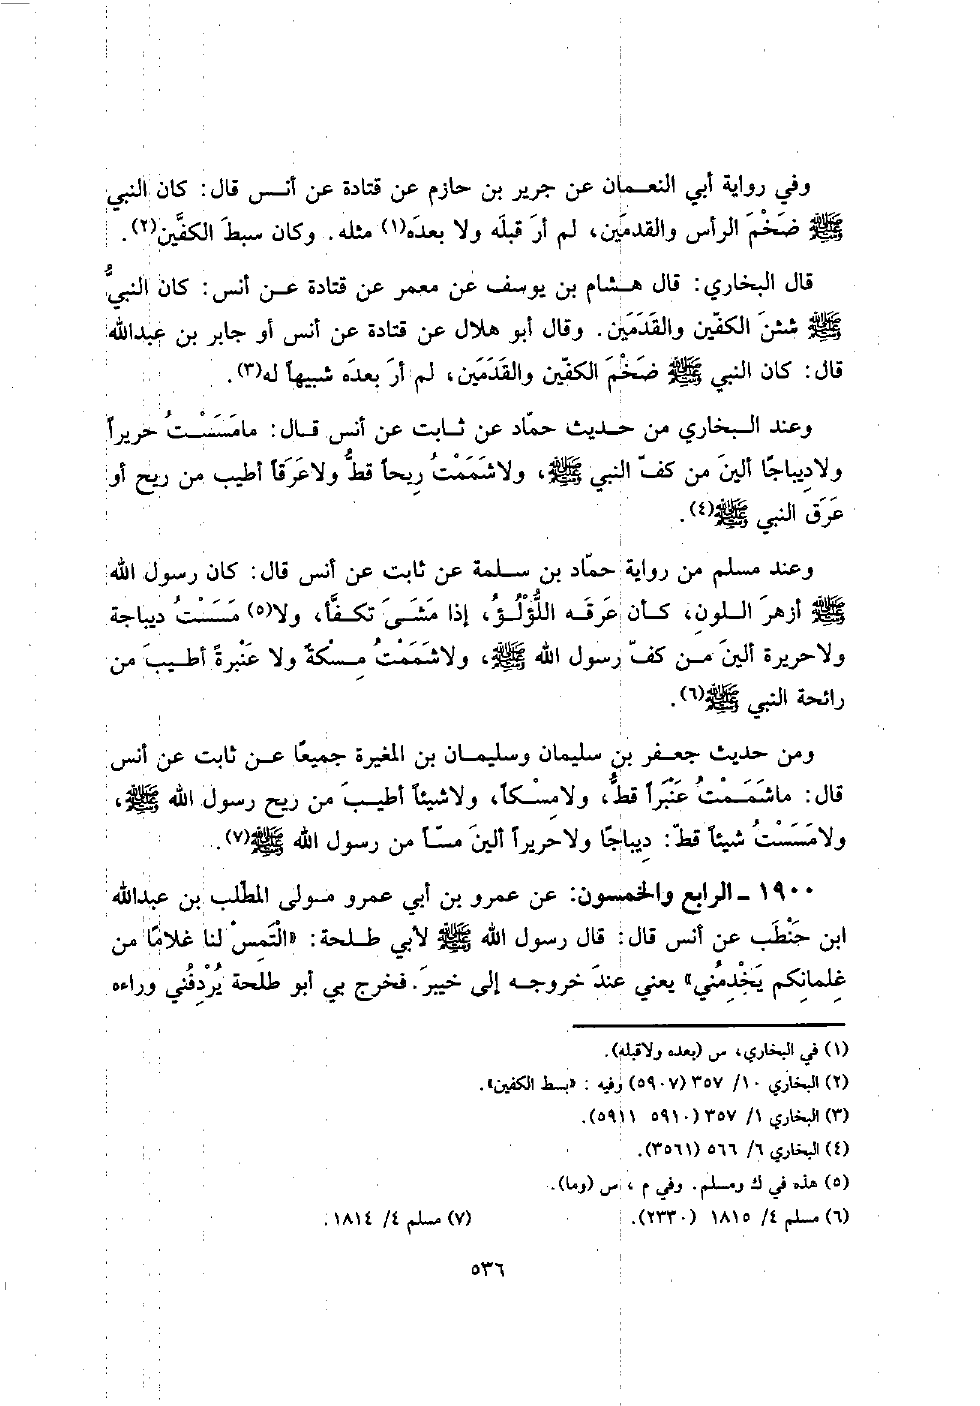 وفي رواية أبي النعمان عن جرير بن حازم عن قتادة عن أنس قال: كان النبي
ﷺ ضَخْمَ الرأس والقدمَين، لم أرَ قبلَه ولا بعدَه(١) مثله. وكان سبطَ الكفَّين(٢).
قال البخاري: قال هشام بن يوسف عن معمر عن قتادة عن أنس: كان النبيُّ
ﷺ شثنَ الكفّين والقَدَمَين. وقال أبو هلال عن قتادة عن أنس أو جابر بن عبدالله
قال: كان النبي ﷺ ضَخْمَ الكفّين والقَدَمَين، لم أرَ بعدَه شبيهاً له(٣).
وعند البخاري من حديث حمّاد عن ثابت عن أنس قال: مامَسَسْتُ حريراً
ولاديباجًا ألينَ من كفّ النبي ﷺ، ولاشَمَمْتُ رِيحاً قطُّ ولاعَرَقاً أطيب من ريح أو
عَرَق النبي ﷺ(٤).
وعند مسلم من رواية حمّاد بن سلمة عن ثابت عن أنس قال: كان رسول الله
ﷺ أزهرَ اللونِ، كأن عَرَقه اللُّؤلُؤُ، إذا مَشَى تكفَّأ، ولا(٥) مَسَسْتُ ديباجة
ولاحريرة ألينَ من كفّ رسول الله ﷺ، ولاشَمَمْتُ مِسْكةً ولا عَنْبرةً أطيبَ من
رائحة النبي ﷺ(٦).
ومن حديث جعفر بن سليمان وسليمان بن المغيرة جميعًا عن ثابت عن أنس
قال: ماشَمَمْتُ عَنْبَراً قطُّ، ولامِسْكاً، ولاشيئاً أطيبَ من ريح رسول الله ﷺ،
ولامَسَسْتُ شيئاً قطّ: دِيباجًا ولاحريراً ألينَ مسّاً من رسول الله ﷺ(٧).
١٩٠٠ - الرابع والخمسون: عن عمرو بن أبي عمرو مولى المطّلب بن عبدالله
ابن حَنْطَب عن أنس قال: قال رسول الله ﷺ لأبي طلحة: «الْتَمِسْ لنا غلامًا من
غِلمانِكم يَخْدِمُني» يعني عندَ خروجه إلى خيبرَ. فخرج بي أبو طلحة يُرْدِفُني وراءه
(١) في البخاري، س (بعده ولاقبله).
(٢) البخاري ١٠/ ٣٥٧ (٥٩٠٧) وفيه : «بسط الكفين».
(٣) البخاري ١/ ٣٥٧ (٥٩١٠ ٥٩١١).
(٤) البخاري ٦/ ٥٦٦ (٣٥٦١).
(٥) هذه في ك ومسلم. وفي م ، س (وما).
(٦) مسلم ٤/ ١٨١٥ (٢٣٣٠). (٧) مسلم ٤/ ١٨١٤.
٥٣٦